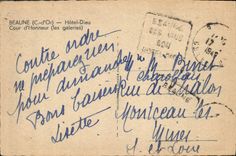 BEAUNE (C.-d'Or) — Hôtel-Dieu
Cour d'Honneur (les galeries)
Contre ordre
ne préparez rien
pour dimanche
Bons baisers
Lisette
BEAUNE
SES VINS
SON
17
1947
Binet
rue de Chalon
Montceau les
Mines
S. et Loire